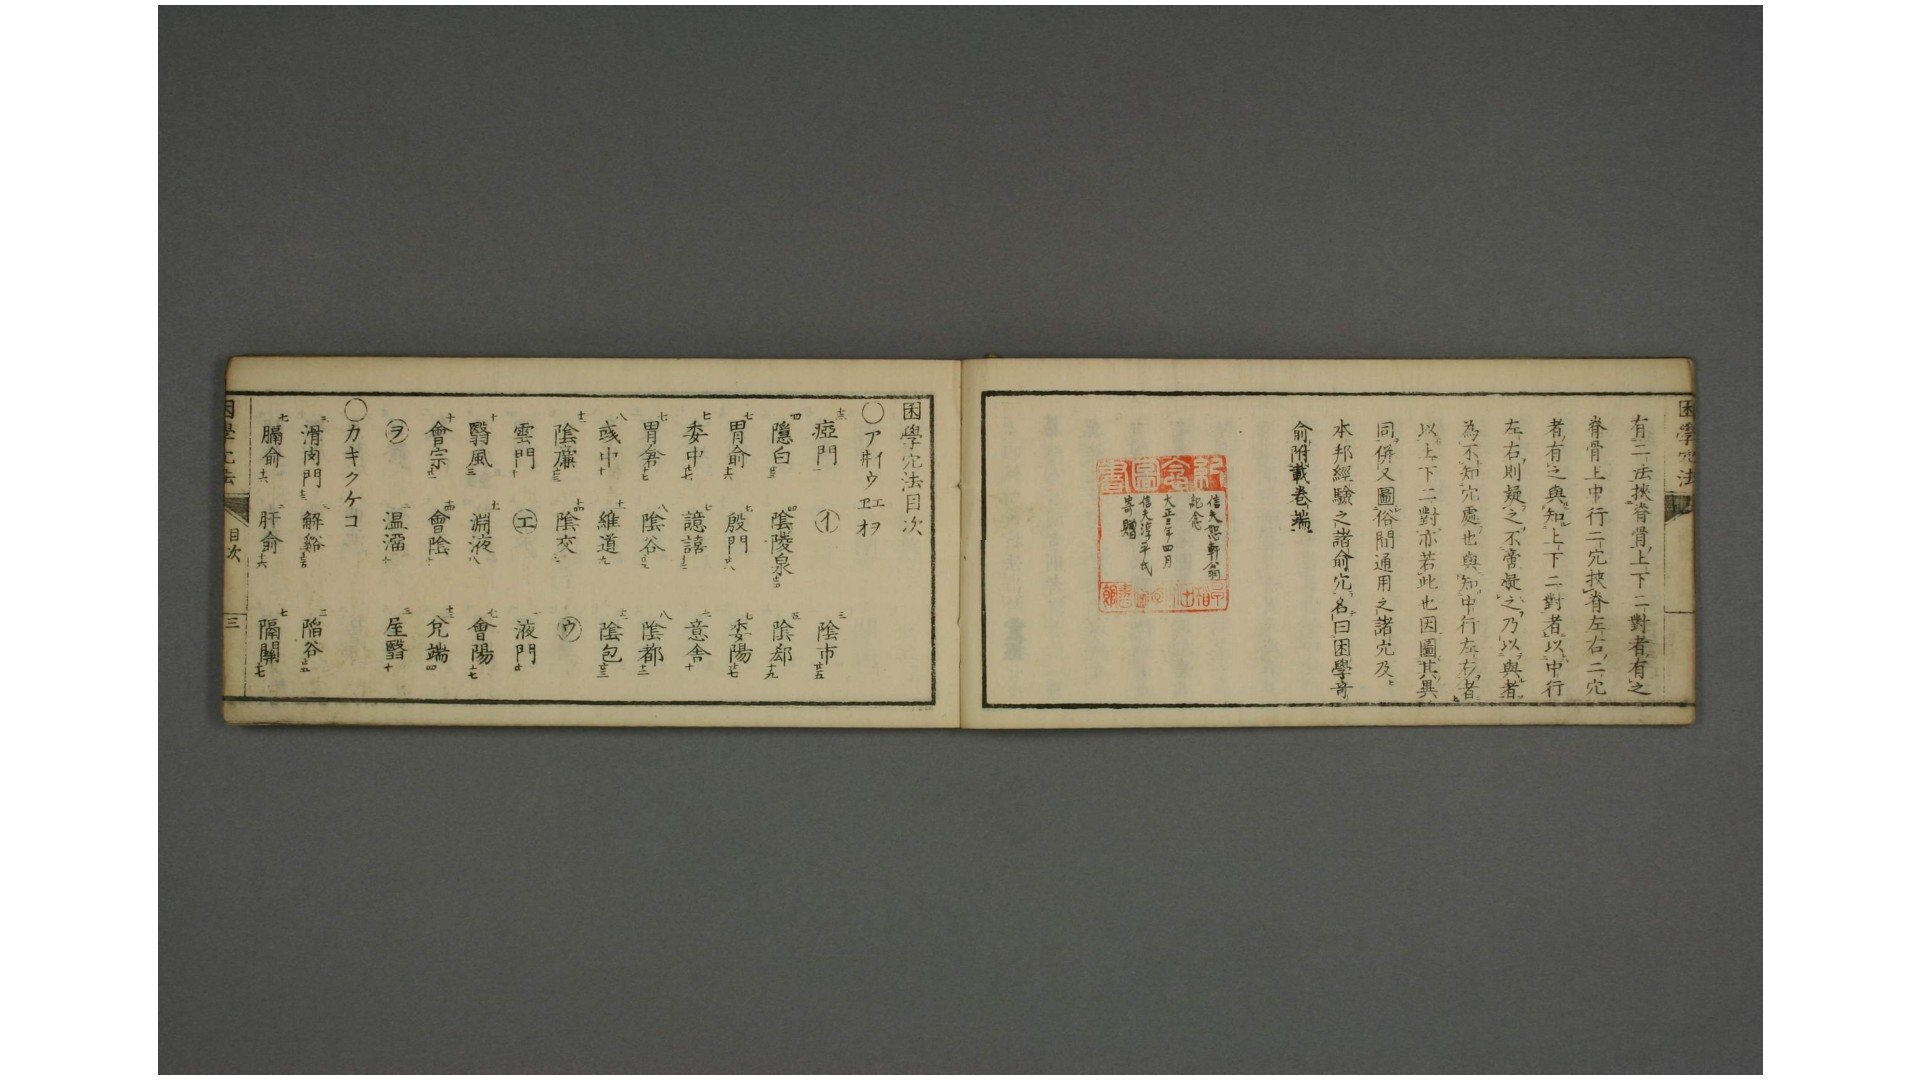 困學穴法
有二法挾脊骨上下二對者有之
脊骨上中行二穴挾脊左右二穴
者有之與知上下二對者以中行
左右則疑之不啻疑之乃以與者
為不知穴處也與知中行左右者
以上下二對亦若此也因圖其異
同併又圖俗間通用之諸穴及
本邦經驗之諸俞穴名曰困學奇
俞附載卷端
紀念圖書
信夫恕軒翁
記念
大正三年四月
信夫淳平氏
寄贈
困學穴法目次
〇アイ井ウヱエヲオ
瘂門 イ 陰市
隱白 陰陵泉 陰郄
胃俞 殷門 委陽
委中 譩譆 意舍
胃倉 陰谷 陰都
彧中 維道 陰包
陰廉 陰交 ウ
雲門 エ 液門
翳風 淵液 會陽
會宗 會陰 兌端
ヲ 温溜 屋翳
〇カキクケコ
滑肉門 解谿 陷谷
膈俞 肝俞 膈關
困學穴法 目次 三